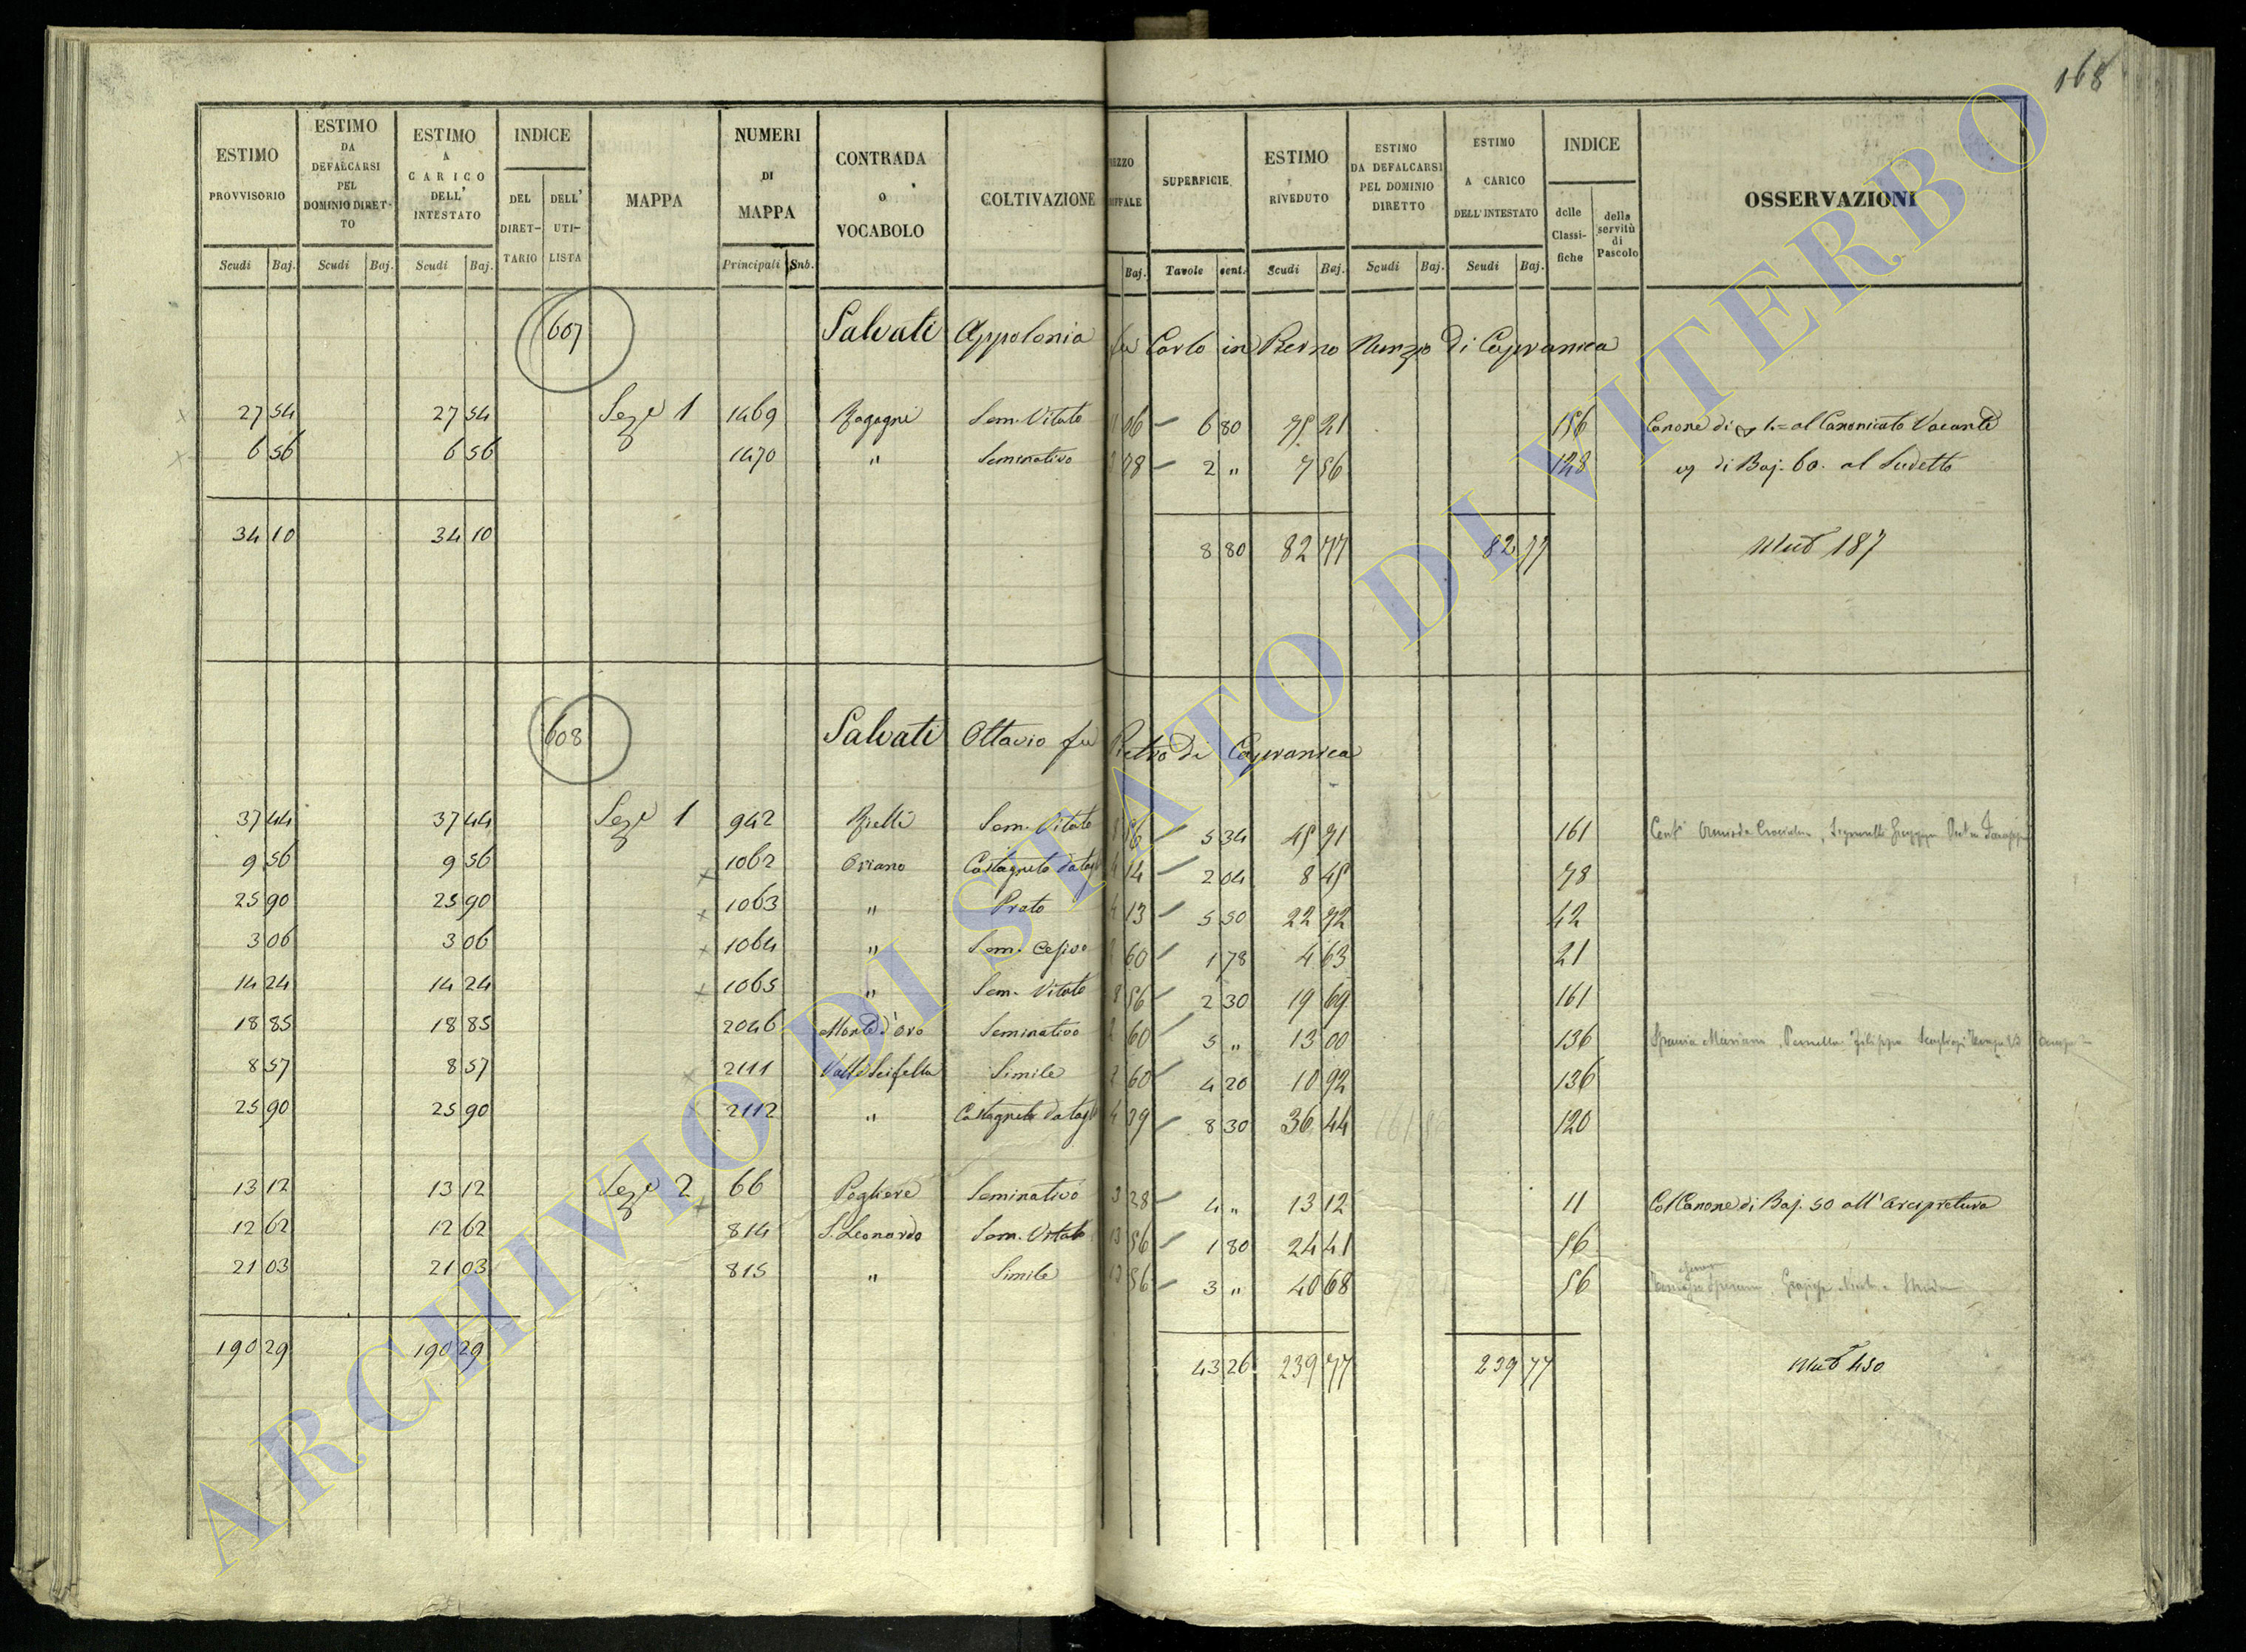 168
ESTIMO PROVVISORIO Scudi Baj.
ESTIMO DA DEFALCARSI PEL DOMINIO DIRET-TO Scudi Baj.
ESTIMO A CARICO DELL' INTESTATO Scudi Baj.
INDICE DEL DIRET-TARIO DELL' UTI-LISTA
MAPPA
NUMERI DI MAPPA Principali Sub.
CONTRADA O VOCABOLO
COLTIVAZIONE
Baj.
SUPERFICIE Tavole cent.
ESTIMO RIVEDUTO Scudi Baj.
ESTIMO DA DEFALCARSI PEL DOMINIO DIRETTO Scudi Baj.
ESTIMO A CARICO DELL'INTESTATO Scudi Baj.
INDICE delle Classi-fiche della servitù di Pascolo
OSSERVAZIONI
607 Salvati Appolonia fu Carlo in Nunzio di Capranica
27 54 27 54 Seze 1 1469 Sem. Vitato 06 6 80 75 21 156 Canone di al Canonicato Vacante
6 56 6 56 1470 " Seminativo 78 2 " 7 56 128 di Baj. 60. al Sudetto
34 10 34 10 8 80 82 77 82 77 Mut 187
608 Salvati Ottavio fu Pietro di Capranica
37 44 37 44 Seze 1 942 Sem. Vitato 56 5 34 45 71 161
9 56 9 56 1062 Oriano Castagneto da tagl 14 2 04 8 45 78
25 90 25 90 1063 " Prato 4 13 5 50 22 72 42
3 06 3 06 1064 " Sem. 60 1 78 4 63 21
14 24 14 24 1065 " Sem. Vitato 8 56 2 30 19 69 161
18 85 18 85 2046 Monte d'oro Seminativo 60 5 " 13 00 136
8 57 8 57 2111 Valle Simile 60 4 20 10 92 136
25 90 25 90 2112 " Castagneto da tagl 4 39 8 30 36 44 120
13 12 13 12 Seze 2 66 Pogliere Seminativo 3 28 4 " 13 12 11 Col Canone di Baj. 50 all' arcipretura
12 62 12 62 814 S. Leonardo Sem. Vitato 13 56 1 80 24 41 56
21 03 21 03 815 " Simile 13 56 3 " 40 68 56
190 29 190 29 43 26 239 77 239 77 Mut 450
ARCHIVIO DI STATO DI VITERBO